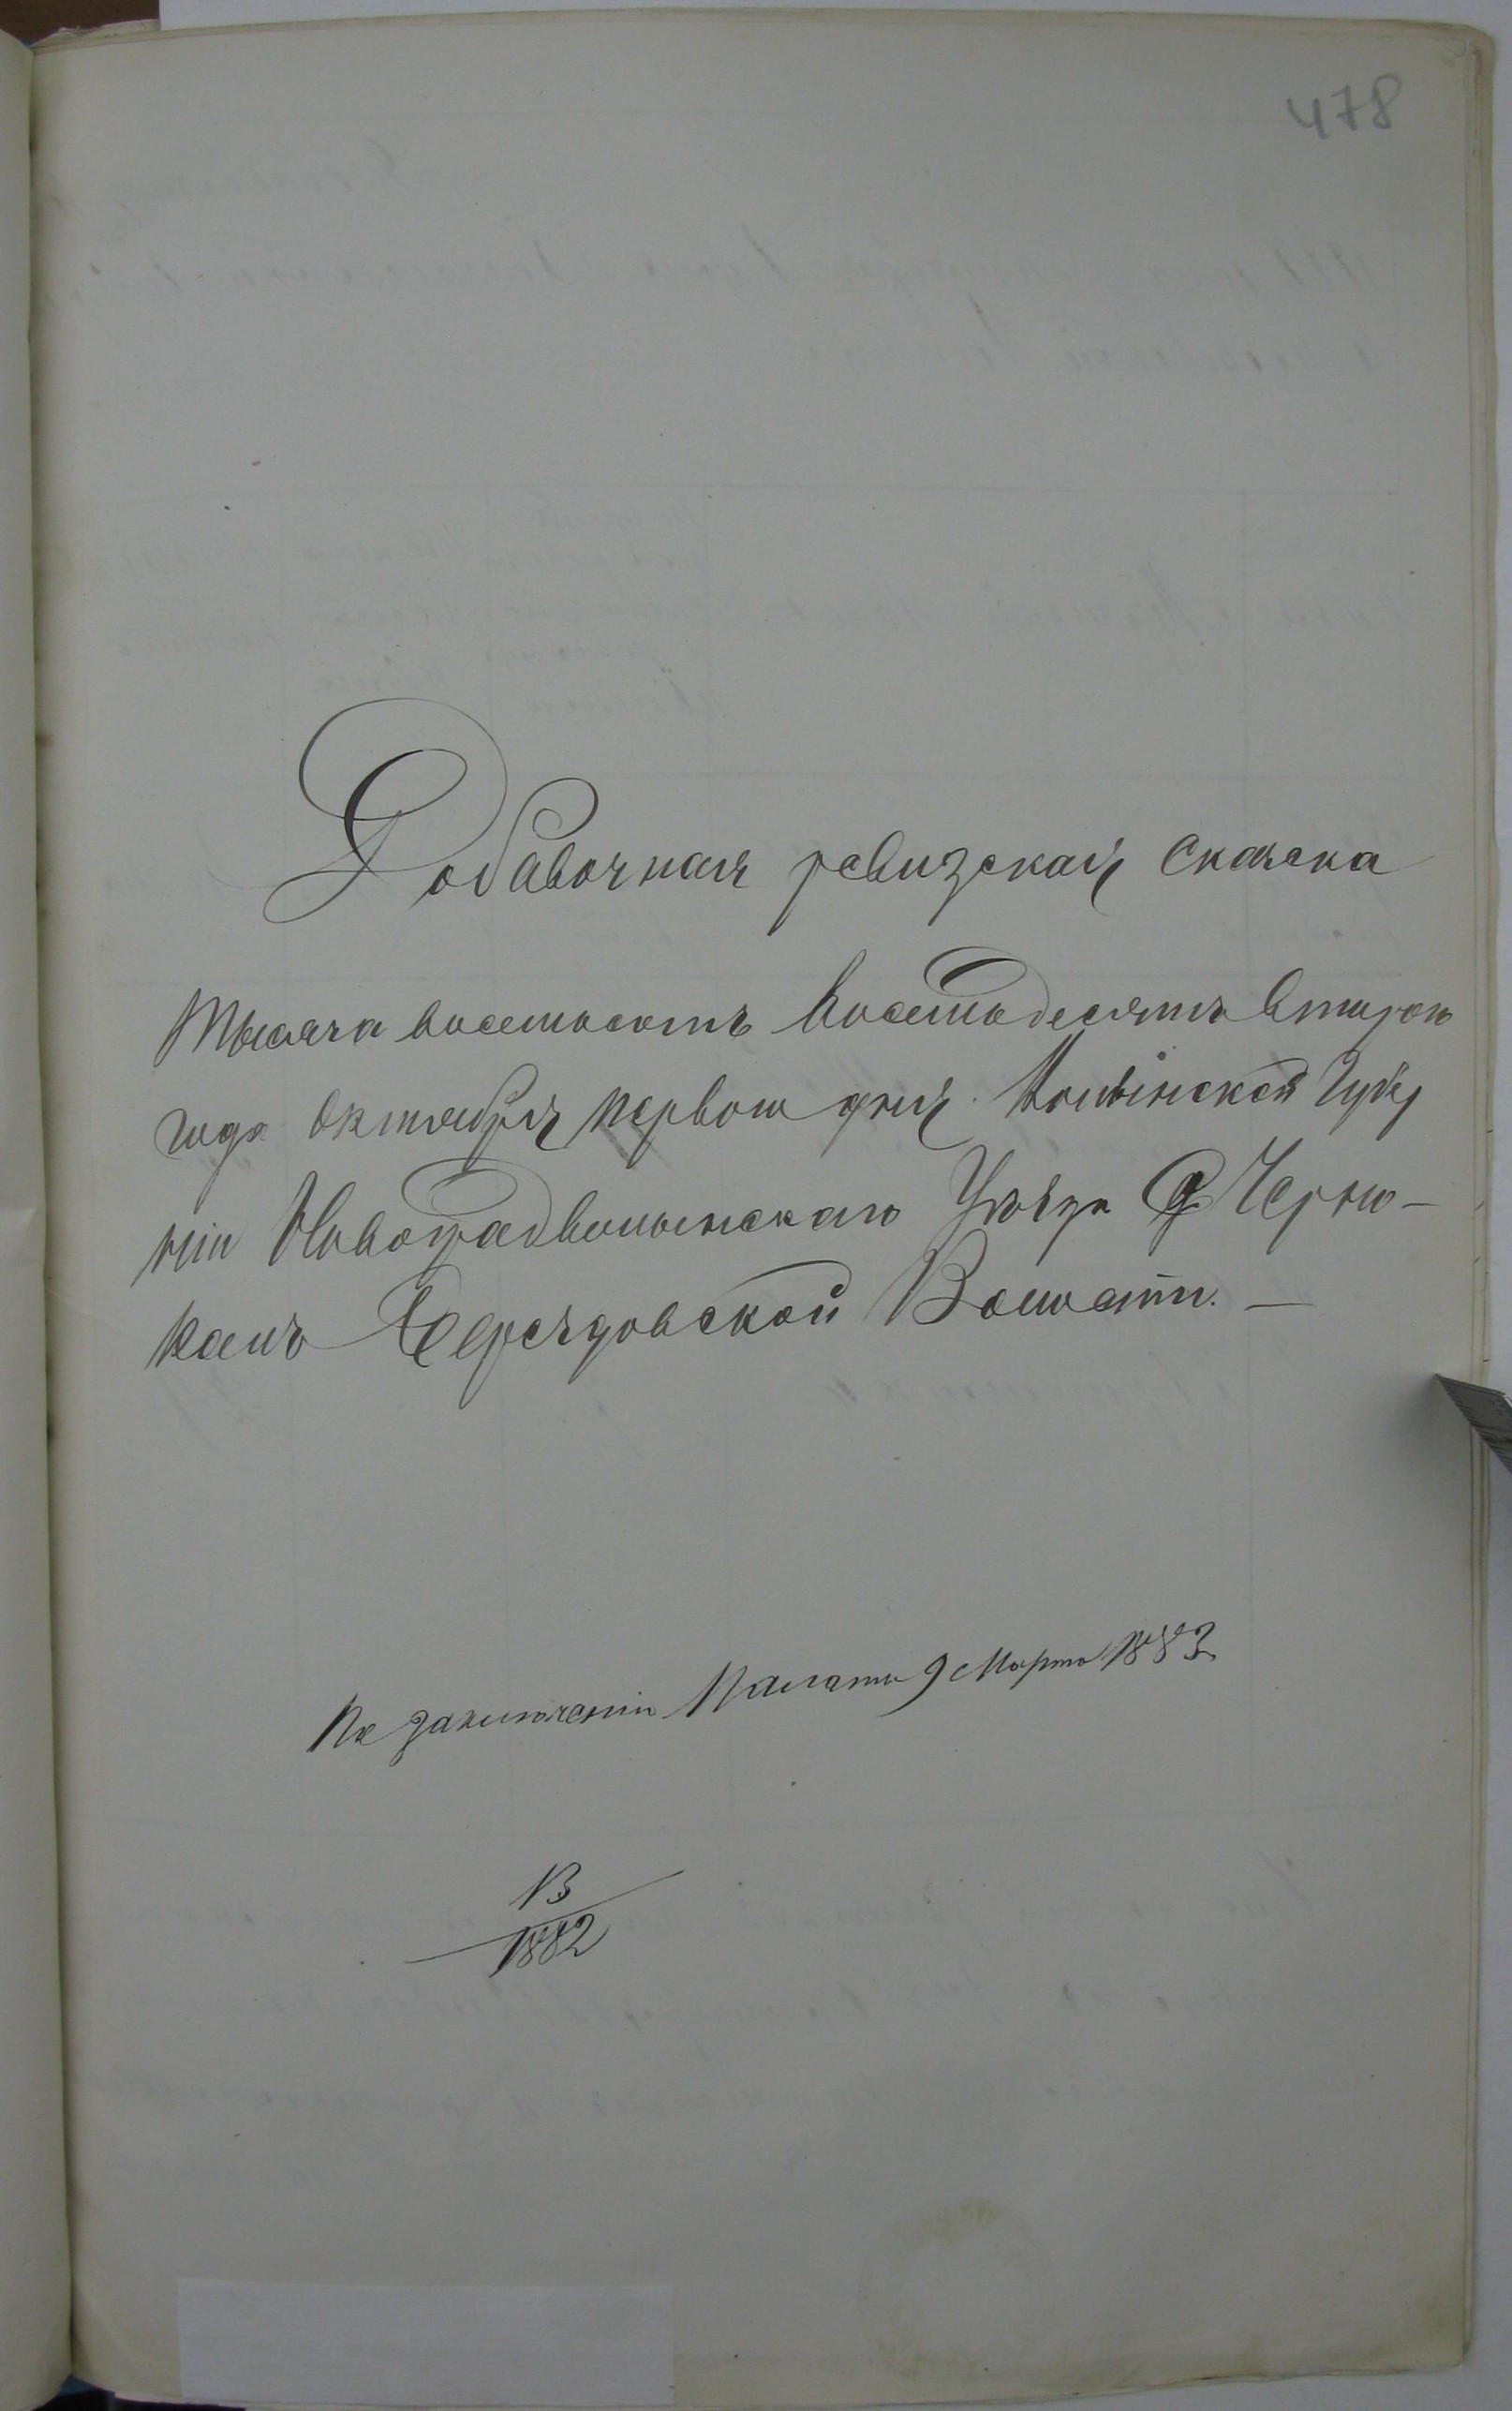 478
Добавочная ревизская сказка
Тысяча восемьсотъ восемьдесятъ втораго
года Октября перваго дня Волынской Губер
ніи Новоградволынскаго Уѣзда д. Черно-
Берездовской Волости. —
Къ заключенію Палаты 9 Марта 1883
13
1882